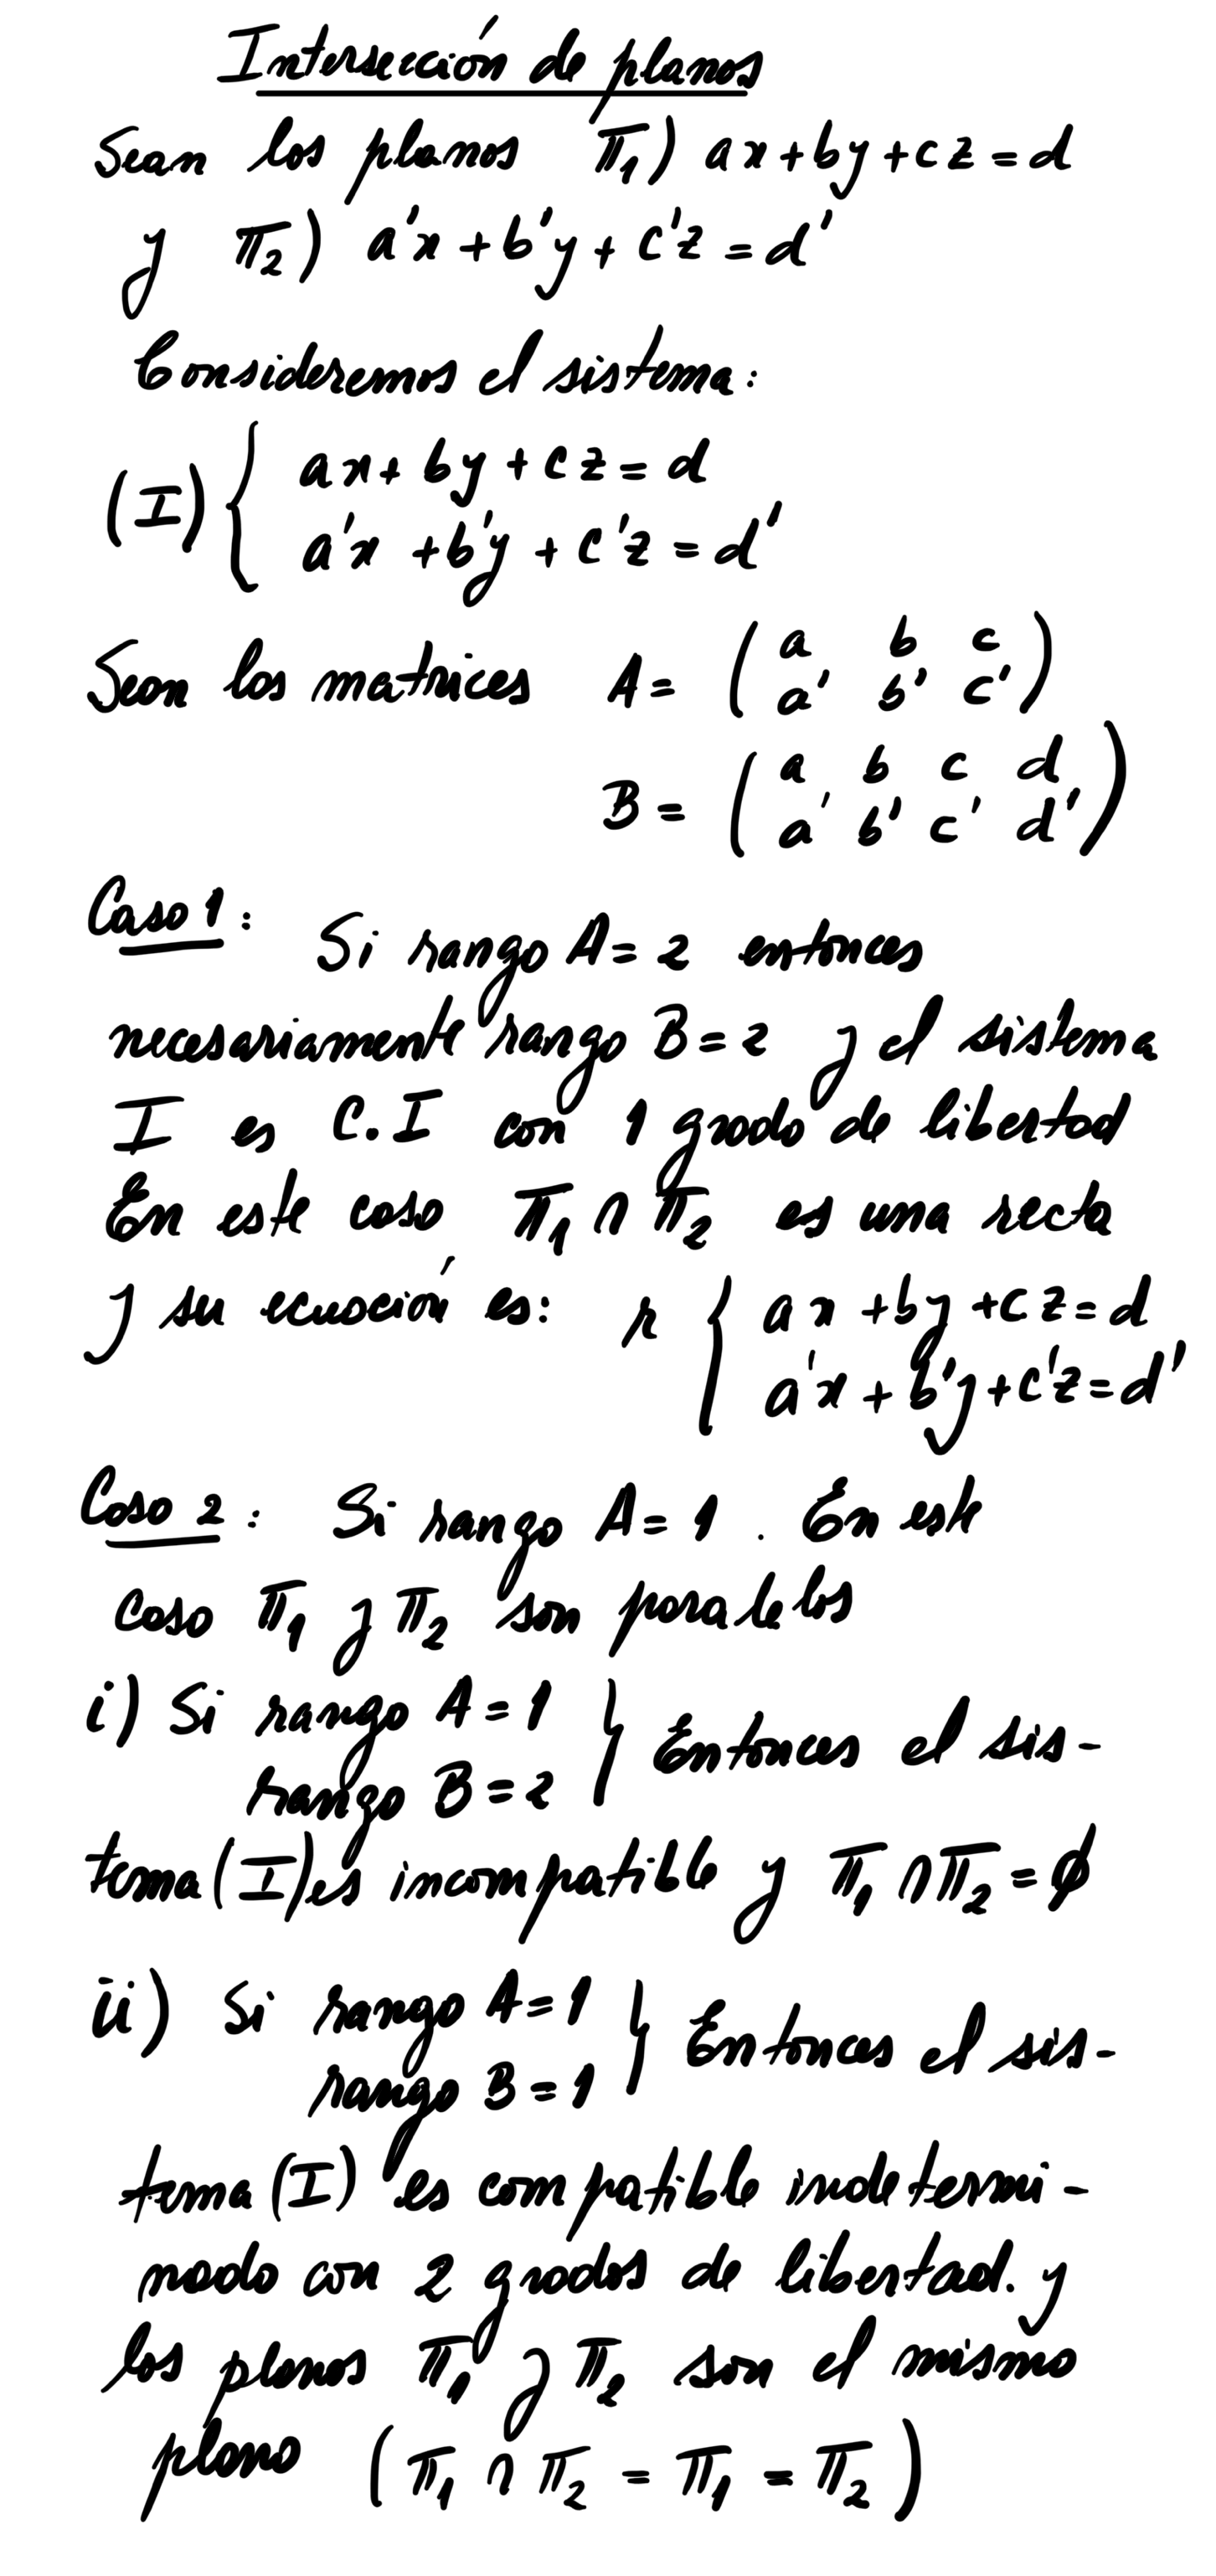 Intersección de planos
Sean los planos π₁) ax+by+cz=d
y π₂) a'x+b'y+c'z=d'
Consideremos el sistema:
(I) { ax+by+cz=d
a'x+b'y+c'z=d'
Sean las matrices A = ( a b c
a' b' c' )
B = ( a b c d
a' b' c' d' )
Caso 1: Si rango A=2 entonces
necesariamente rango B=2 y el sistema
I es C.I con 1 grado de libertad
En este caso π₁ ∩ π₂ es una recta
y su ecuación es: r { ax+by+cz=d
a'x+b'y+c'z=d'
Caso 2: Si rango A=1. En este
caso π₁ y π₂ son paralelos
i) Si rango A=1
rango B=2 } Entonces el sis-
tema (I) es incompatible y π₁ ∩ π₂ = ϕ
ii) Si rango A=1
rango B=1 } Entonces el sis-
tema (I) es compatible indetermi-
nado con 2 grados de libertad. y
los planos π₁ y π₂ son el mismo
plano (π₁ ∩ π₂ = π₁ = π₂)